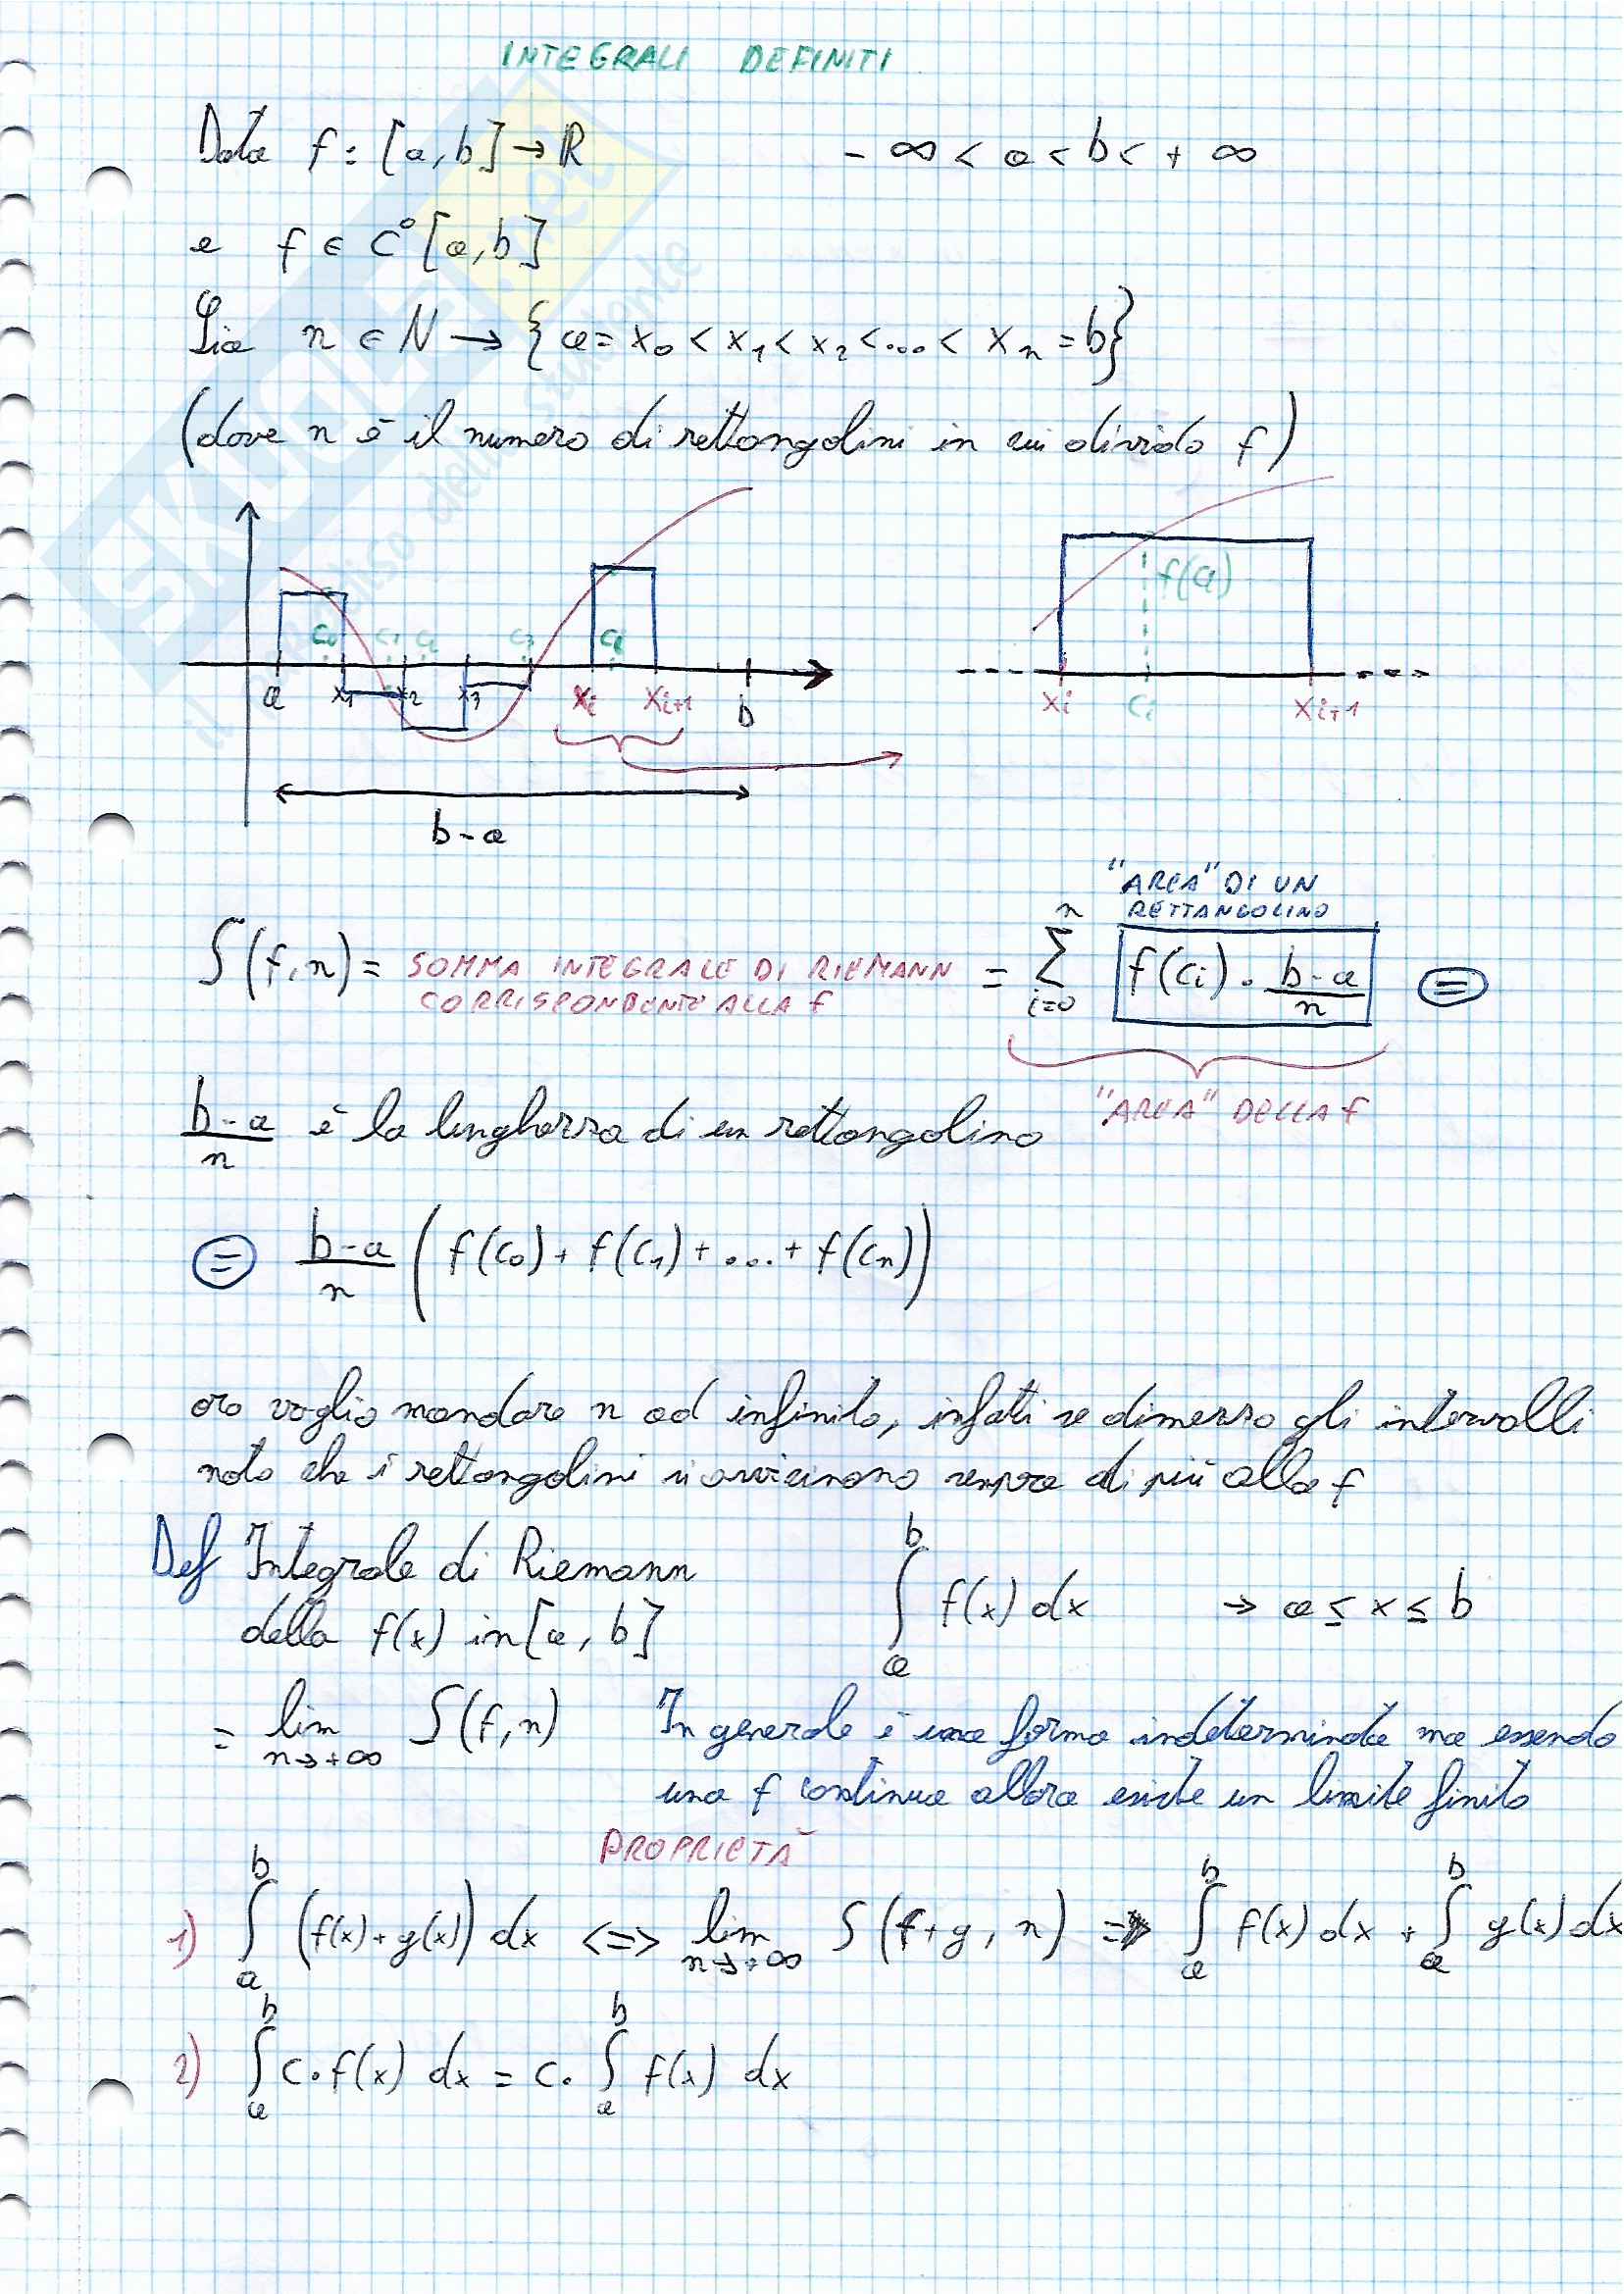 INTEGRALI DEFINITI
Data f : [a,b] → ℝ - ∞ < a < b < + ∞
e f ∈ C⁰[a,b]
Sia n ∈ N → {a = x₀ < x₁ < x₂ < ... < xₙ = b}
(dove n è il numero di rettangolini in cui divido f)
c₀ c₁ c₂ c₃ cᵢ
a x₁ x₂ x₃ xᵢ xᵢ₊₁ b
b-a
f(cᵢ)
xᵢ cᵢ xᵢ₊₁
"AREA" DI UN
RETTANGOLINO
S(f,n) = SOMMA INTEGRALE DI RIEMANN
CORRISPONDENTE ALLA f
= ∑ᵢ₌₀ⁿ f(cᵢ) · (b-a)/n =
"AREA" DELLA f
(b-a)/n è la lunghezza di un rettangolino
= (b-a)/n (f(c₀) + f(c₁) + ... + f(cₙ))
ora voglio mandare n ad infinito, infatti se dimezzo gli intervalli
noto che i rettangolini si avvicinano sempre di più alla f
Def Integrale di Riemann
della f(x) in [a,b]
∫ₐᵇ f(x) dx → a ≤ x ≤ b
= lim n→+∞ S(f,n)
In generale è una forma indeterminata ma essendo
una f continua allora esiste un limite finito
PROPRIETÀ
1) ∫ₐᵇ (f(x)+g(x)) dx <=> lim n→+∞ S(f+g, n) => ∫ₐᵇ f(x) dx + ∫ₐᵇ g(x) dx
2) ∫ₐᵇ c·f(x) dx = c· ∫ₐᵇ f(x) dx
SKUOLA.net
il paradiso dello studente